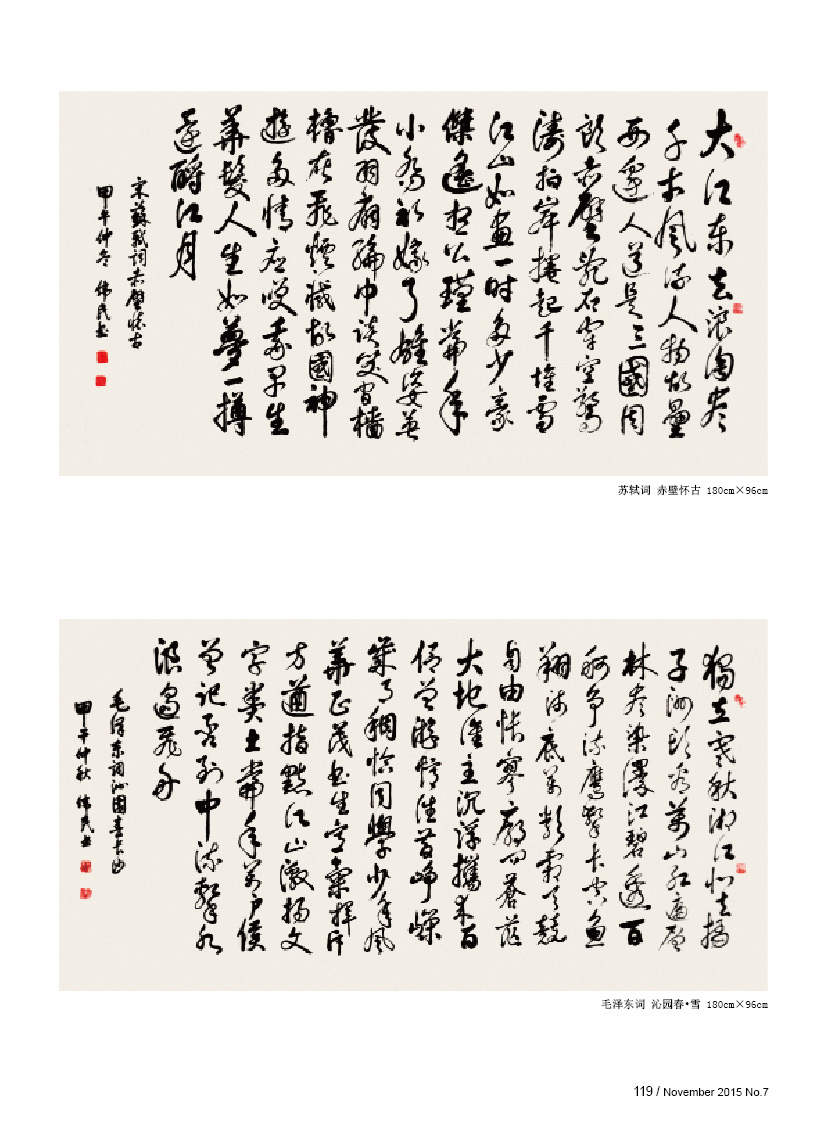 大江东去浪淘尽
千古风流人物故垒
西边人道是三國周
郎赤壁乱石穿空驚
涛拍岸捲起千堆雪
江山如画一时多少豪
傑遥想公瑾當年
小乔初嫁了雄姿英
發羽扇綸巾谈笑间樯
橹灰飛煙滅故國神
遊多情应笑我早生
華髮人生如夢一樽
還酹江月
宋蘇軾詞赤壁怀古
甲午仲冬 伟民书
苏轼词 赤壁怀古 180cm×96cm
獨立寒秋湘江北去橘
子洲头看萬山红遍层
林尽染漫江碧透百
舸争流鹰擊长空鱼
翔浅底萬类霜天競
自由怅寥廓问蒼茫
大地谁主沉浮攜来百
侣曾游憶往昔峥嵘
歲月稠恰同學少年風
華正茂书生意氣揮斥
方遒指點江山激扬文
字粪土當年万户侯
曾记否到中流擊水
浪遏飛舟
毛泽东词沁园春长沙
甲午仲秋 伟民书
毛泽东词 沁园春•雪 180cm×96cm
119 / November 2015 No.7